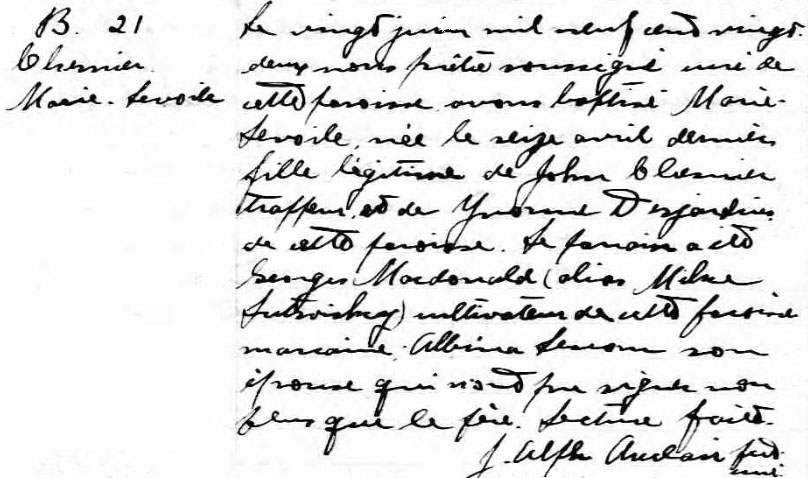 B. 21
Chernier
Marie-Levoile
Le vingt juin mil neuf cent vingt-
deux nous prêtre soussigné curé de
cette paroisse avons baptisé Marie-
Levoile, née le seize avril dernier
fille légitime de John Chernier
trappeur, et de Yvonne Desjardins
de cette paroisse. Le parrain a été
Georges Macdonald (alias Mike
) cultivateur de cette paroisse
marraine Albina son
épouse qui n'ont pu signer non
plus que le père. Lecture faite.
J. Alph Auclair ptr
curé